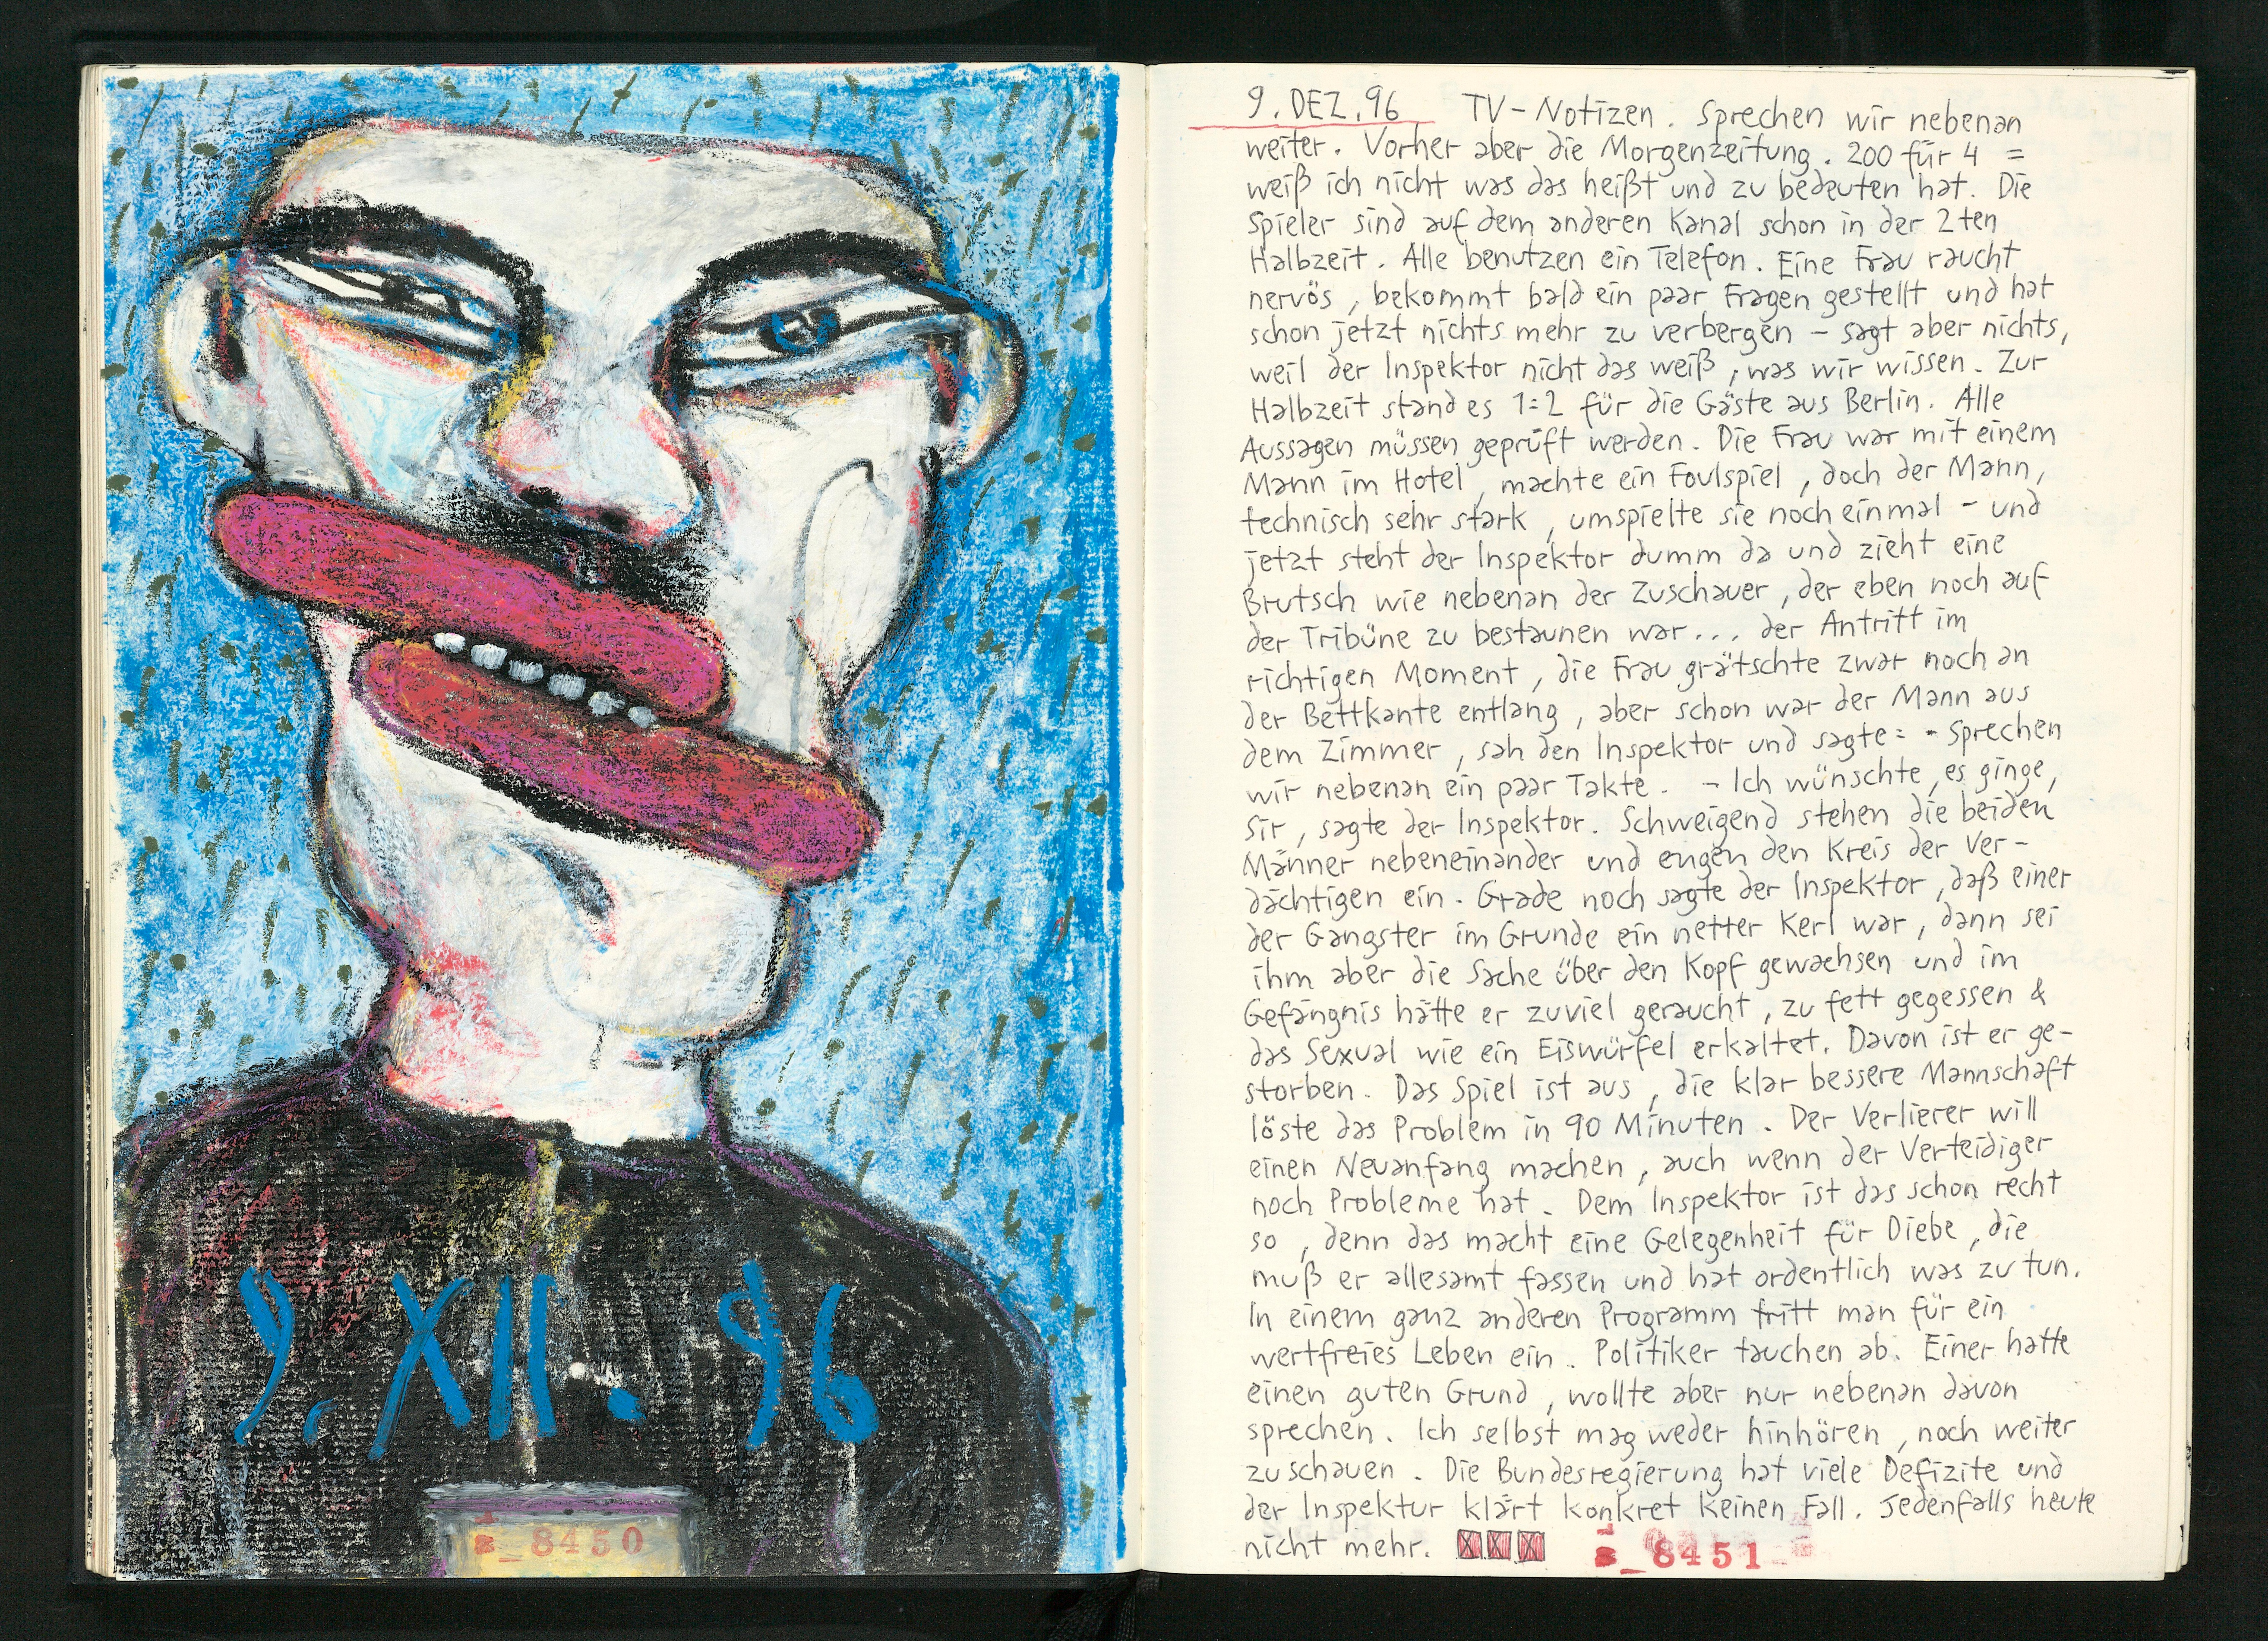 9. XII. 96
8450
9. DEZ. 96 TV-Notizen. Sprechen wir nebenan
weiter. Vorher aber die Morgenzeitung. 200 für 4 =
weiß ich nicht was das heißt und zu bedeuten hat. Die
Spieler sind auf dem anderen Kanal schon in der 2ten
Halbzeit. Alle benutzen ein Telefon. Eine Frau raucht
nervös, bekommt bald ein paar Fragen gestellt und hat
schon jetzt nichts mehr zu verbergen – sagt aber nichts,
weil der Inspektor nicht das weiß, was wir wissen. Zur
Halbzeit stand es 1:2 für die Gäste aus Berlin. Alle
Aussagen müssen geprüft werden. Die Frau war mit einem
Mann im Hotel, machte ein Foulspiel, doch der Mann,
technisch sehr stark, umspielte sie noch einmal – und
jetzt steht der Inspektor dumm da und zieht eine
Brutsch wie nebenan der Zuschauer, der eben noch auf
der Tribüne zu bestaunen war... der Antritt im
richtigen Moment, die Frau grätschte zwar noch an
der Bettkante entlang, aber schon war der Mann aus
dem Zimmer, sah den Inspektor und sagte: - Sprechen
wir nebenan ein paar Takte. – Ich wünschte, es ginge,
Sir, sagte der Inspektor. Schweigend stehen die beiden
Männer nebeneinander und engen den Kreis der Ver-
dächtigen ein. Grade noch sagte der Inspektor, daß einer
der Gangster im Grunde ein netter Kerl war, dann sei
ihm aber die Sache über den Kopf gewachsen und im
Gefängnis hätte er zuviel geraucht, zu fett gegessen &
das Sexual wie ein Eiswürfel erkaltet. Davon ist er ge-
storben. Das Spiel ist aus, die klar bessere Mannschaft
löste das Problem in 90 Minuten. Der Verlierer will
einen Neuanfang machen, auch wenn der Verteidiger
noch Probleme hat. Dem Inspektor ist das schon recht
so, denn das macht eine Gelegenheit für Diebe, die
muß er allesamt fassen und hat ordentlich was zu tun.
In einem ganz anderen Programm tritt man für ein
wertfreies Leben ein. Politiker tauchen ab. Einer hatte
einen guten Grund, wollte aber nur nebenan davon
sprechen. Ich selbst mag weder hinhören, noch weiter
zuschauen. Die Bundesregierung hat viele Defizite und
der Inspektur klärt konkret keinen Fall. Jedenfalls heute
nicht mehr.
8451